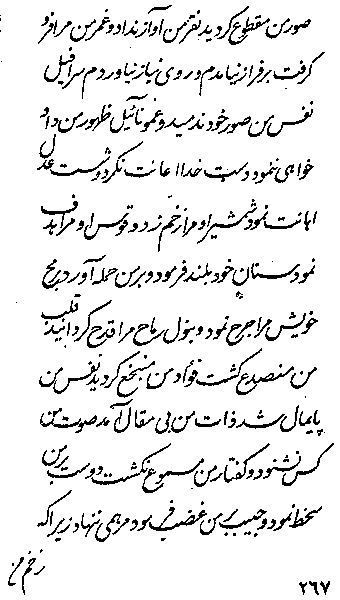 صور من مقطوع گردید نقر من آواز نداد و غمر من مرا فرو
گرفت بر فراز نیامدم و روی نیاز نیاوردم سرافیل
نفس من صور خود ندمید و غمونائیل ظهور من داد
خواهی ننمود دست خدا اعانت نکرد و شست عدل
اهانت نمود شمشیر او مرا زخم زد و قوس او مرا هدف
نمود سنان خود بلند فرمود و بر من حمله آورد برمح
خویش مرا جرح نمود و بنول رماح مرا قدح گردانید قلب
من منصدع گشت فؤاد من منبخع گردید نفس من
پایمال شد ذات من بی مقال آمد صوت من
کس نشنود و گفتار من مسموع نگشت دوست بر من
سخط نمود و حبیب بر من غضب فرمود مرهمی ننهاد زیرا که
زخم من
۲۶۷